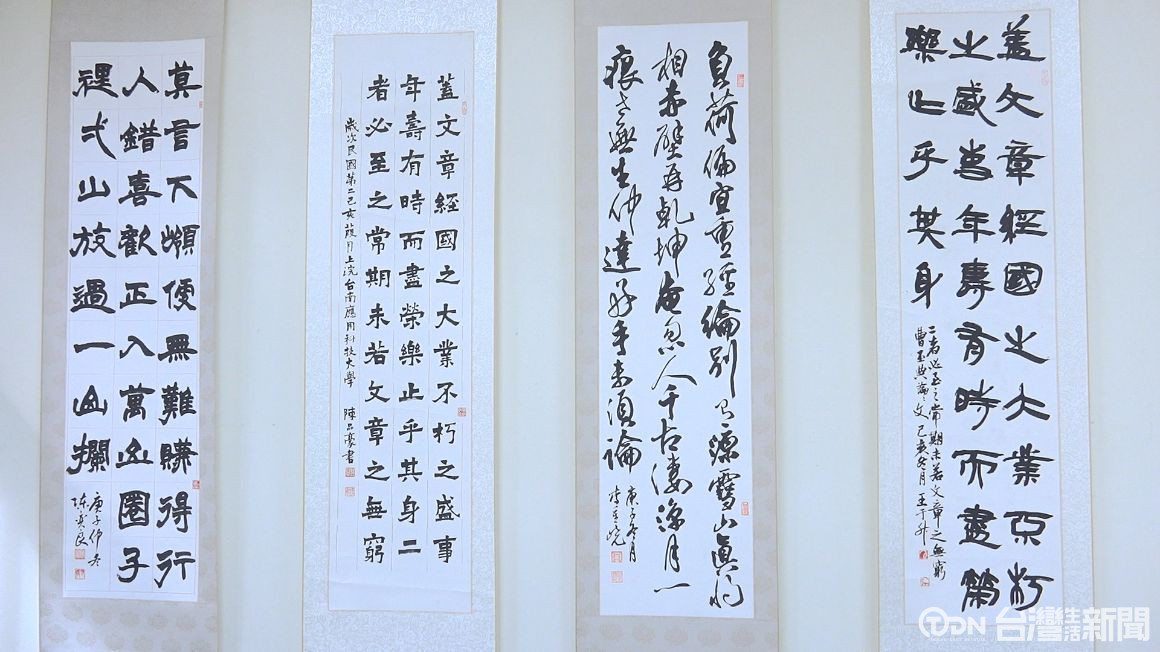 蓋文章經國之大業不朽
之盛事年壽有時而盡榮
樂止乎其身
二者必至之常期未若文章之無窮
曹丕典論論文己亥冬月 王
負荷偏宜重經綸別有源雪山真將
相赤壁再乾坤奄忽人千古淒涼月一
痕世無生仲達好手未須論
庚子冬月
蓋文章經國之大業不朽之盛事
年壽有時而盡榮樂止乎其身二
者必至之常期未若文章之無窮
歲次民國第二己亥葭月上浣台南應用科技大學 陳品豪書
莫言下嶺便無難賺得行
人錯喜歡正入萬山圈子
裡弌山放過一山攔
庚子仲冬
TDN 台灣生活新聞